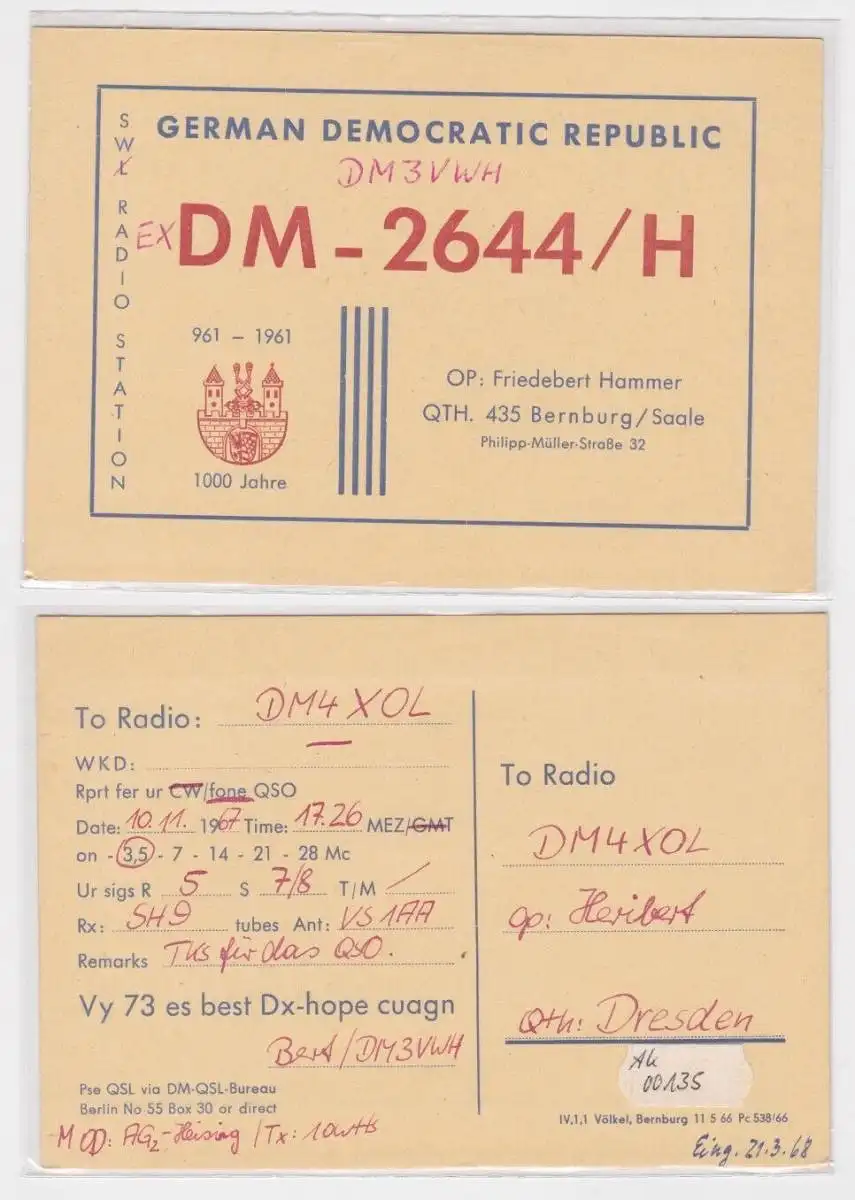 SWL RADIO STATION
GERMAN DEMOCRATIC REPUBLIC
DM3VWH
EX DM-2644/H
961 - 1961
1000 Jahre
OP: Friedebert Hammer
QTH. 435 Bernburg/Saale
Philipp-Müller-Straße 32
To Radio: DM4XOL
WKD:
Rprt fer ur CW/fone QSO
Date: 10.11. 1967 Time: 17.26 MEZ/GMT
on - 3,5 - 7 - 14 - 21 - 28 Mc
Ur sigs R 5 S 7/8 T/M /
Rx: SH9 tubes Ant: VS1AA
Remarks TKS für das QSO.
Vy 73 es best Dx-hope cuagn
Bert/DM3VWH
Pse QSL via DM-QSL-Bureau
Berlin No 55 Box 30 or direct
MOD: AG2-Heising / Tx: 10 watts
To Radio
DM4XOL
op: Heribert
Qth: Dresden
Ak
00135
IV,1,1 Völkel, Bernburg 11 5 66 Pc 538/66
Eing. 21.3.68